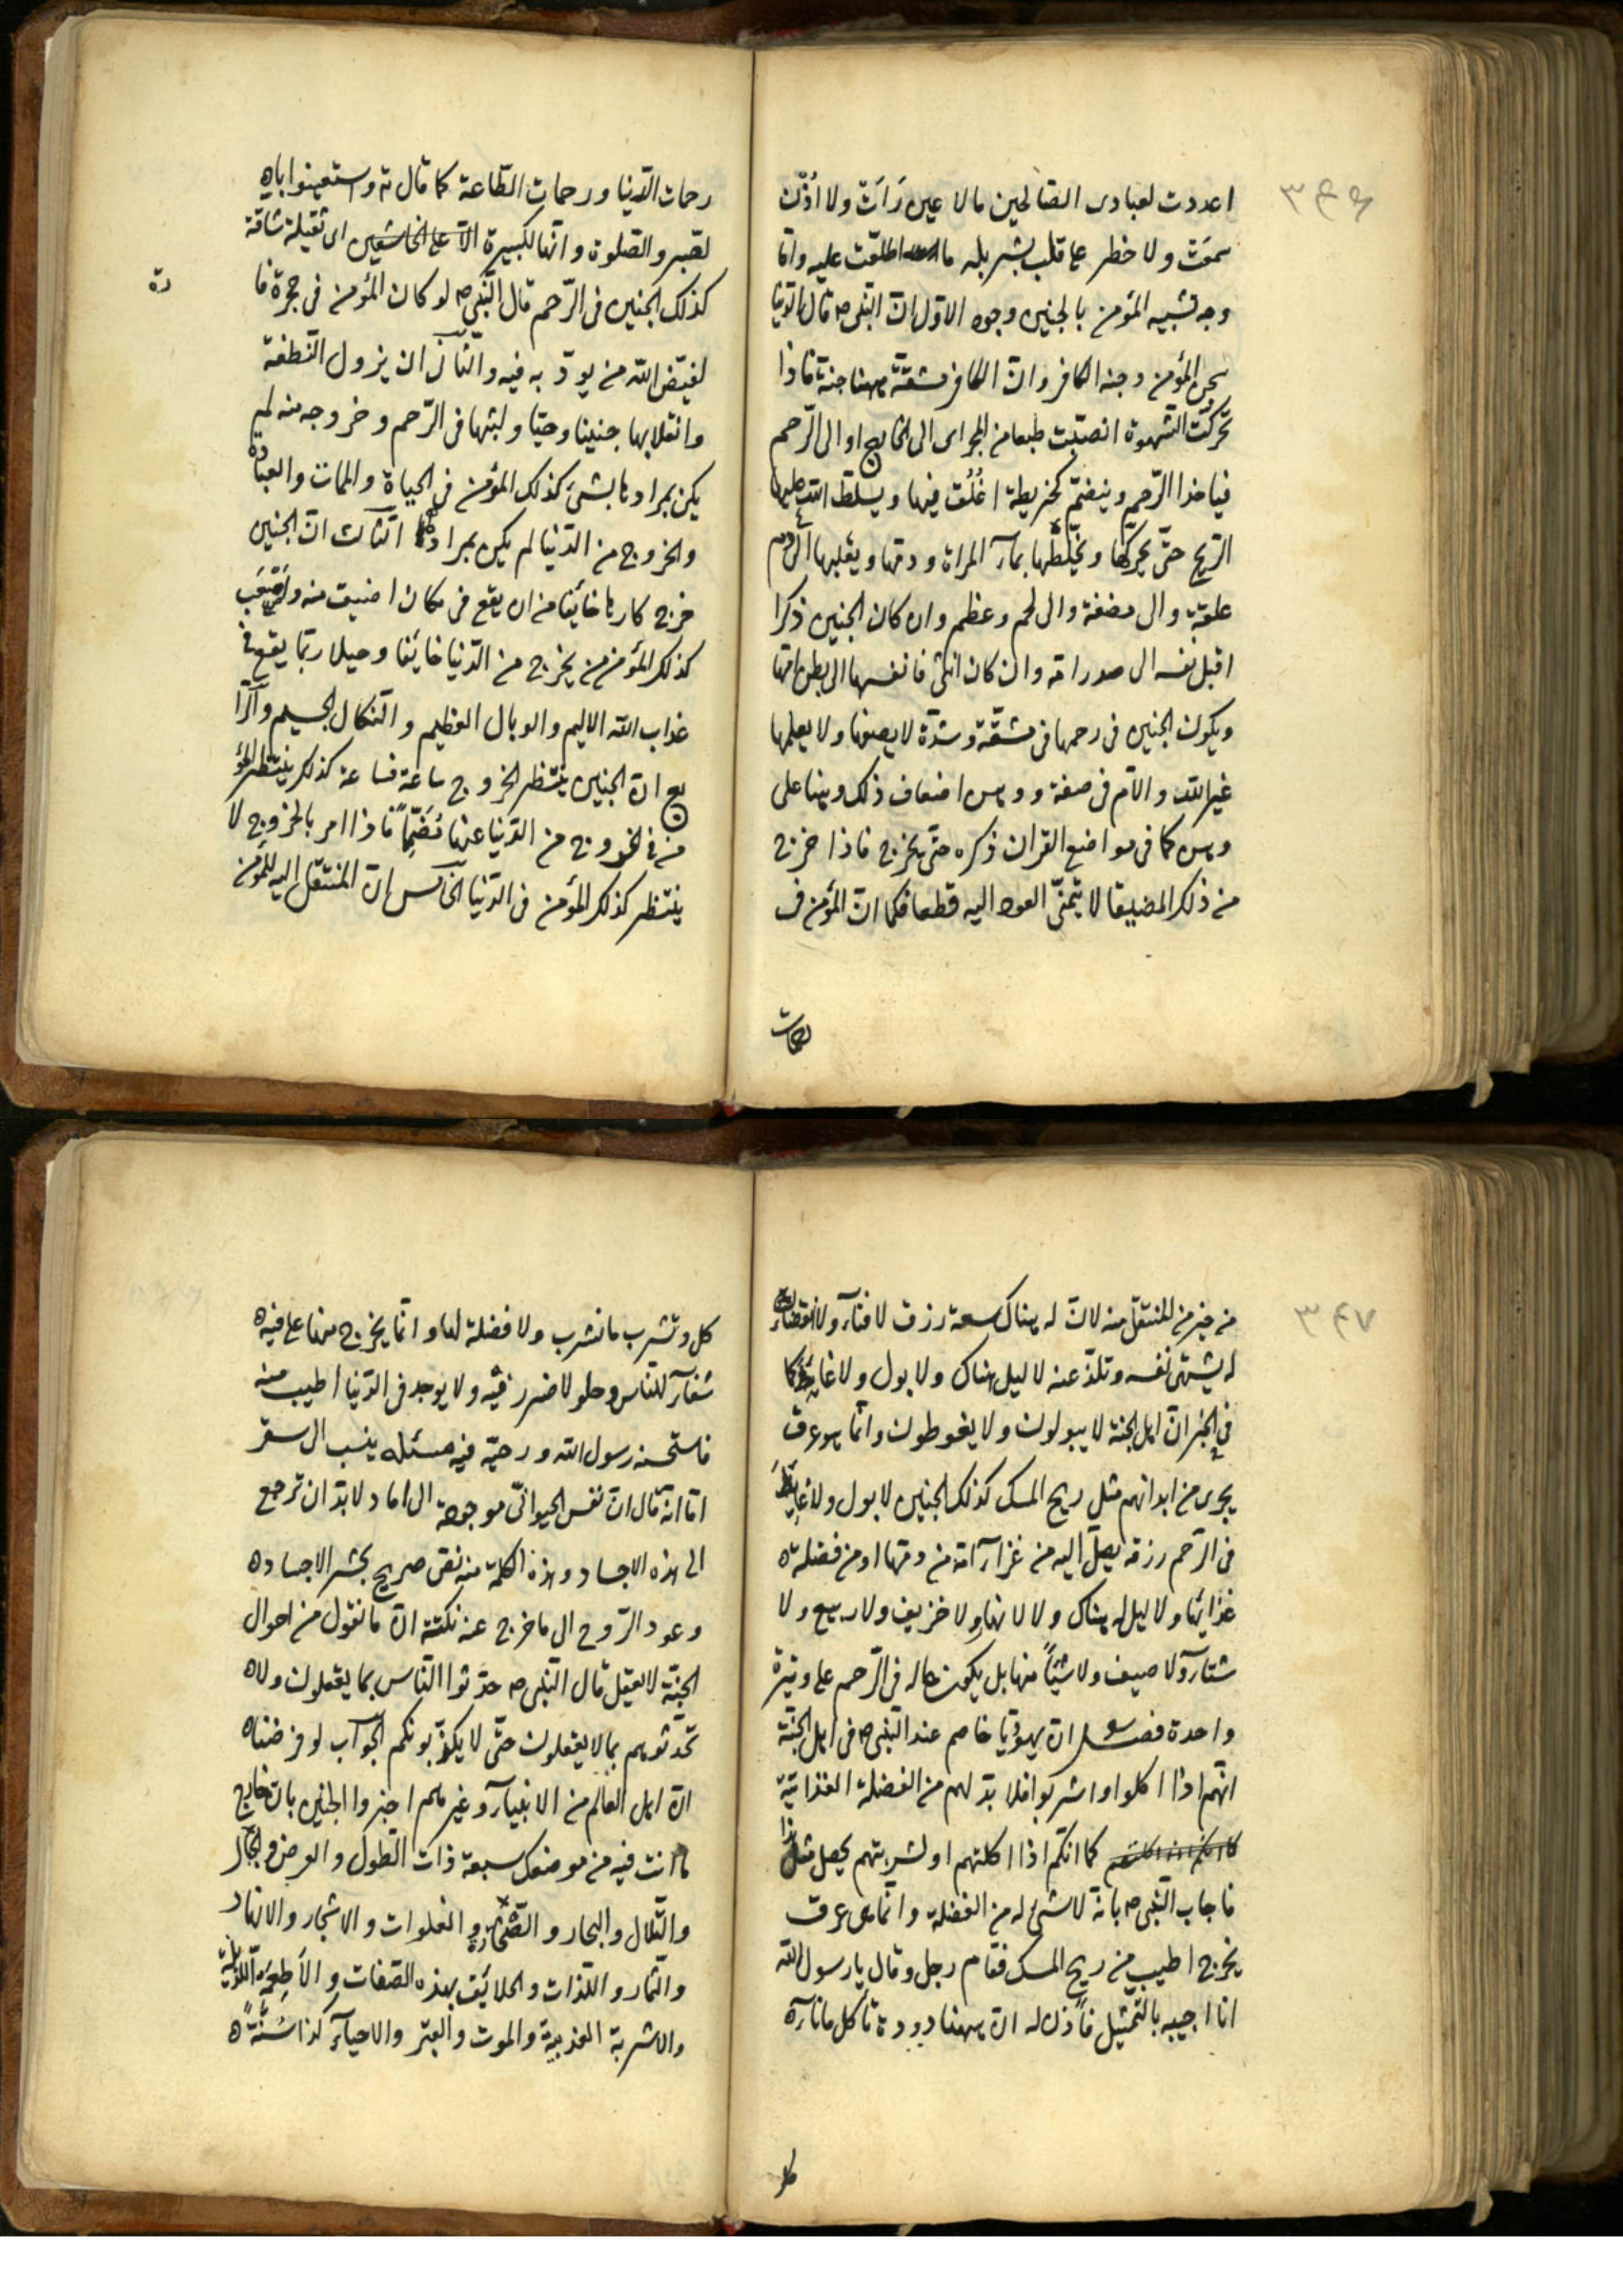 ٣٤٦
اعددت لعبادى الصالحين مالا عين رَاَت ولا اُذُن
سمعَت ولا خطر على قلب بشر بله ما اطلعت عليه وامّا
وجه تشبيه المؤمن بالجنين وجوه الاوّل انّ النّبى ص قال الدّنيا
سجن المؤمن وجنه الكافر وانّ الكافر مشقّة ههنا جنة فاذا
تحرّكت الشهوة انصبّت طبعا من المجراى الى الخارج او الى الرّحم
فياخذ الرّحم وينضمّ كخريطة اغُلُقت فيها ويسلّط الله عليها
الرّيح حتّى يحركها ويخلّطها بمآء المراة ودمها ويقلبها الى دم
علقة والى مضغة والى لحم وعظم وان كان الجنين ذكرا
اقبل نفسه الى صدر امّه وان كان انثى فانفسها الى بطن امّها
ويكون الجنين فى رحمها فى مشقّة وشدّة لا يصفها ولا يعلمها
غير الله والآم فى صفة و اضعاف ذلك وههنا على
كما فى مواضع القران ذكره حتّى يخرج فاذا خرج
من ذلك المضيقا لا يتمنّى العود اليه قطعا فكما انّ المؤمن ف
رحمات
رحمات الدّنيا ورحمات الطّاعة كما قال ته واستعينوا باه
لصّبر والصّلوة وانّها لكبيرة الّا على الخاشعين اى ثقيلة شاقّة
كذلك الجنين فى الرّحم قال النّبى ص لو كان المؤمن فى حجرة فا
رة
لقيّض الله من يوذّ به فيه والثّانى ان يزول النّطفة
وانقلابها جنينا وحيّا ولبثها فى الرّحم وخروجه منه لم
يكن بمرادها بشىء كذلك المؤمن فى الحياة والممات والعبادة
والخروج من الدّنيا لم يكن بمراده الثّالث انّ الجنين
خرج كارها خائفا من ان يقع فى مكان اضيق منه واَصعَب
كذلك المؤمن من يخرج من الدّنيا خائفا وجلا ربّما يقع فى
عذاب الله الاليم والوبال العظيم والنّكال الجسيم والرّا
بع انّ الجنين ينتظر الخروج ساعة فساعة كذلك ينتظر المؤ
من فى الخروج من الدّنيا عنها فاذا امر بالخروج لا
ينتظر كذلك المؤمن فى الدّنيا الخامس انّ المنتقل اليه للمؤمن
٣٤٧
من خير من المنتقل منه لانّ له هناك سعة رزق لا فنآء ولا انقضآء
له يشتهى نفسه وتلذّ عنه لا ليل هناك ولا بول ولا غايط كما
فى الخبر انّ اهل الجنة لا يبولون ولا يغوطون وانّما هو عرق
يجرى من ابدانهم مثل ريح المسك كذلك الجنين لا بول ولا غايط
فى الرّحم رزقه يصل اليه من غزآء امّه من دمها او من فضلة ه
غذائها ولا ليل له هناك ولا لا نهار ولا خريف ولا ربيع ولا
شتآء ولا صيف ولا شيئاً منها بل يكون حاله فى الرّحم على وتيرة
واحدة فصل انّ يهوديّا خاصم عند النّبى ص فى اهل الجنّة
انّهم اذا اكلوا واشربوا فلا بدّ لهم من الفضلة الغذائيّة
كما انّكم اذا اكلتهم او لشربتهم يحصل مثل هذا
فاجاب النّبى ص بانّه لا شىء له من الفضلة وانّما هى عرق
يخرج اطيب من ريح المسك فقام رجل وقال يا رسول الله
انا اجيبه بالتمثيل فاُذن له انّ ههنا دودة تاكل ما نآءه
كل
كل وتشرب ما نشرب ولا فضلة لها وانّما يخرج منها على فيه ه
شفآء للنّاس وحلو لا ضرر فيه ولا يوجد فى الدّنيا اطيب منه
فاستحسنه رسول الله ورحبّه فيه مسئله ينسب الى سقر
اط انّه قال انّ نفس الحيوانّى موجوده الى اماد لا بدّ ان ترجع
الى هذه الاجساد وهذه الكلمة منه نصّ صريح بحشر الاجساد ه
وعود الرّوح الى ما خرج عنه نكتة انّ ما نقول من احوال
الجنّة لا يعقل قال النّبى ص حدّثوا النّاس بما يعقلون ولا ه
تحدّثوهم بما لا يعقلون حتّى لا يكذّبونكم الجوآب لو فرضنا ه
انّ اهل العالم من الانبيآء وغيرهم اخبروا الجنين بانّ خارج
ما انت فيه من موضعك سبعة ذات الطّول والعرض والجبال
والتّلال والبحار والصّحارى والفلوات والاشجار والانهار
والثمار واللّذات والخلائق بهذه الصّفات والاَطعِمَة اللّذيذة
والاشربة العذبية والموت والعبر والاحيآء كذا سُنّةً ه